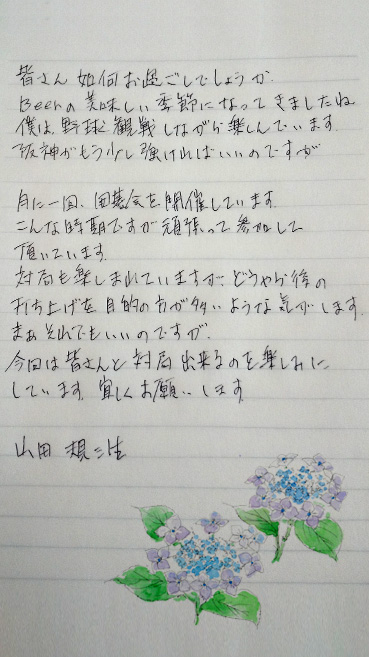 皆さん 如何お過ごしでしょうか.
Beerの美味しい季節になってきましたね
僕は、野球を観戦しながら楽しんでいます.
阪神がもう少し強ければいいのですが
月に一回、囲碁会を開催しています.
こんな時期ですが頑張って参加して
頂いています.
対局も楽しまれていますが、どうやら後の
打ち上げを目的の方が多いような気がします.
まぁそれでもいいのですが.
今回は皆さんと対局出来るのを楽しみに
しています. 宜しくお願いします
山田